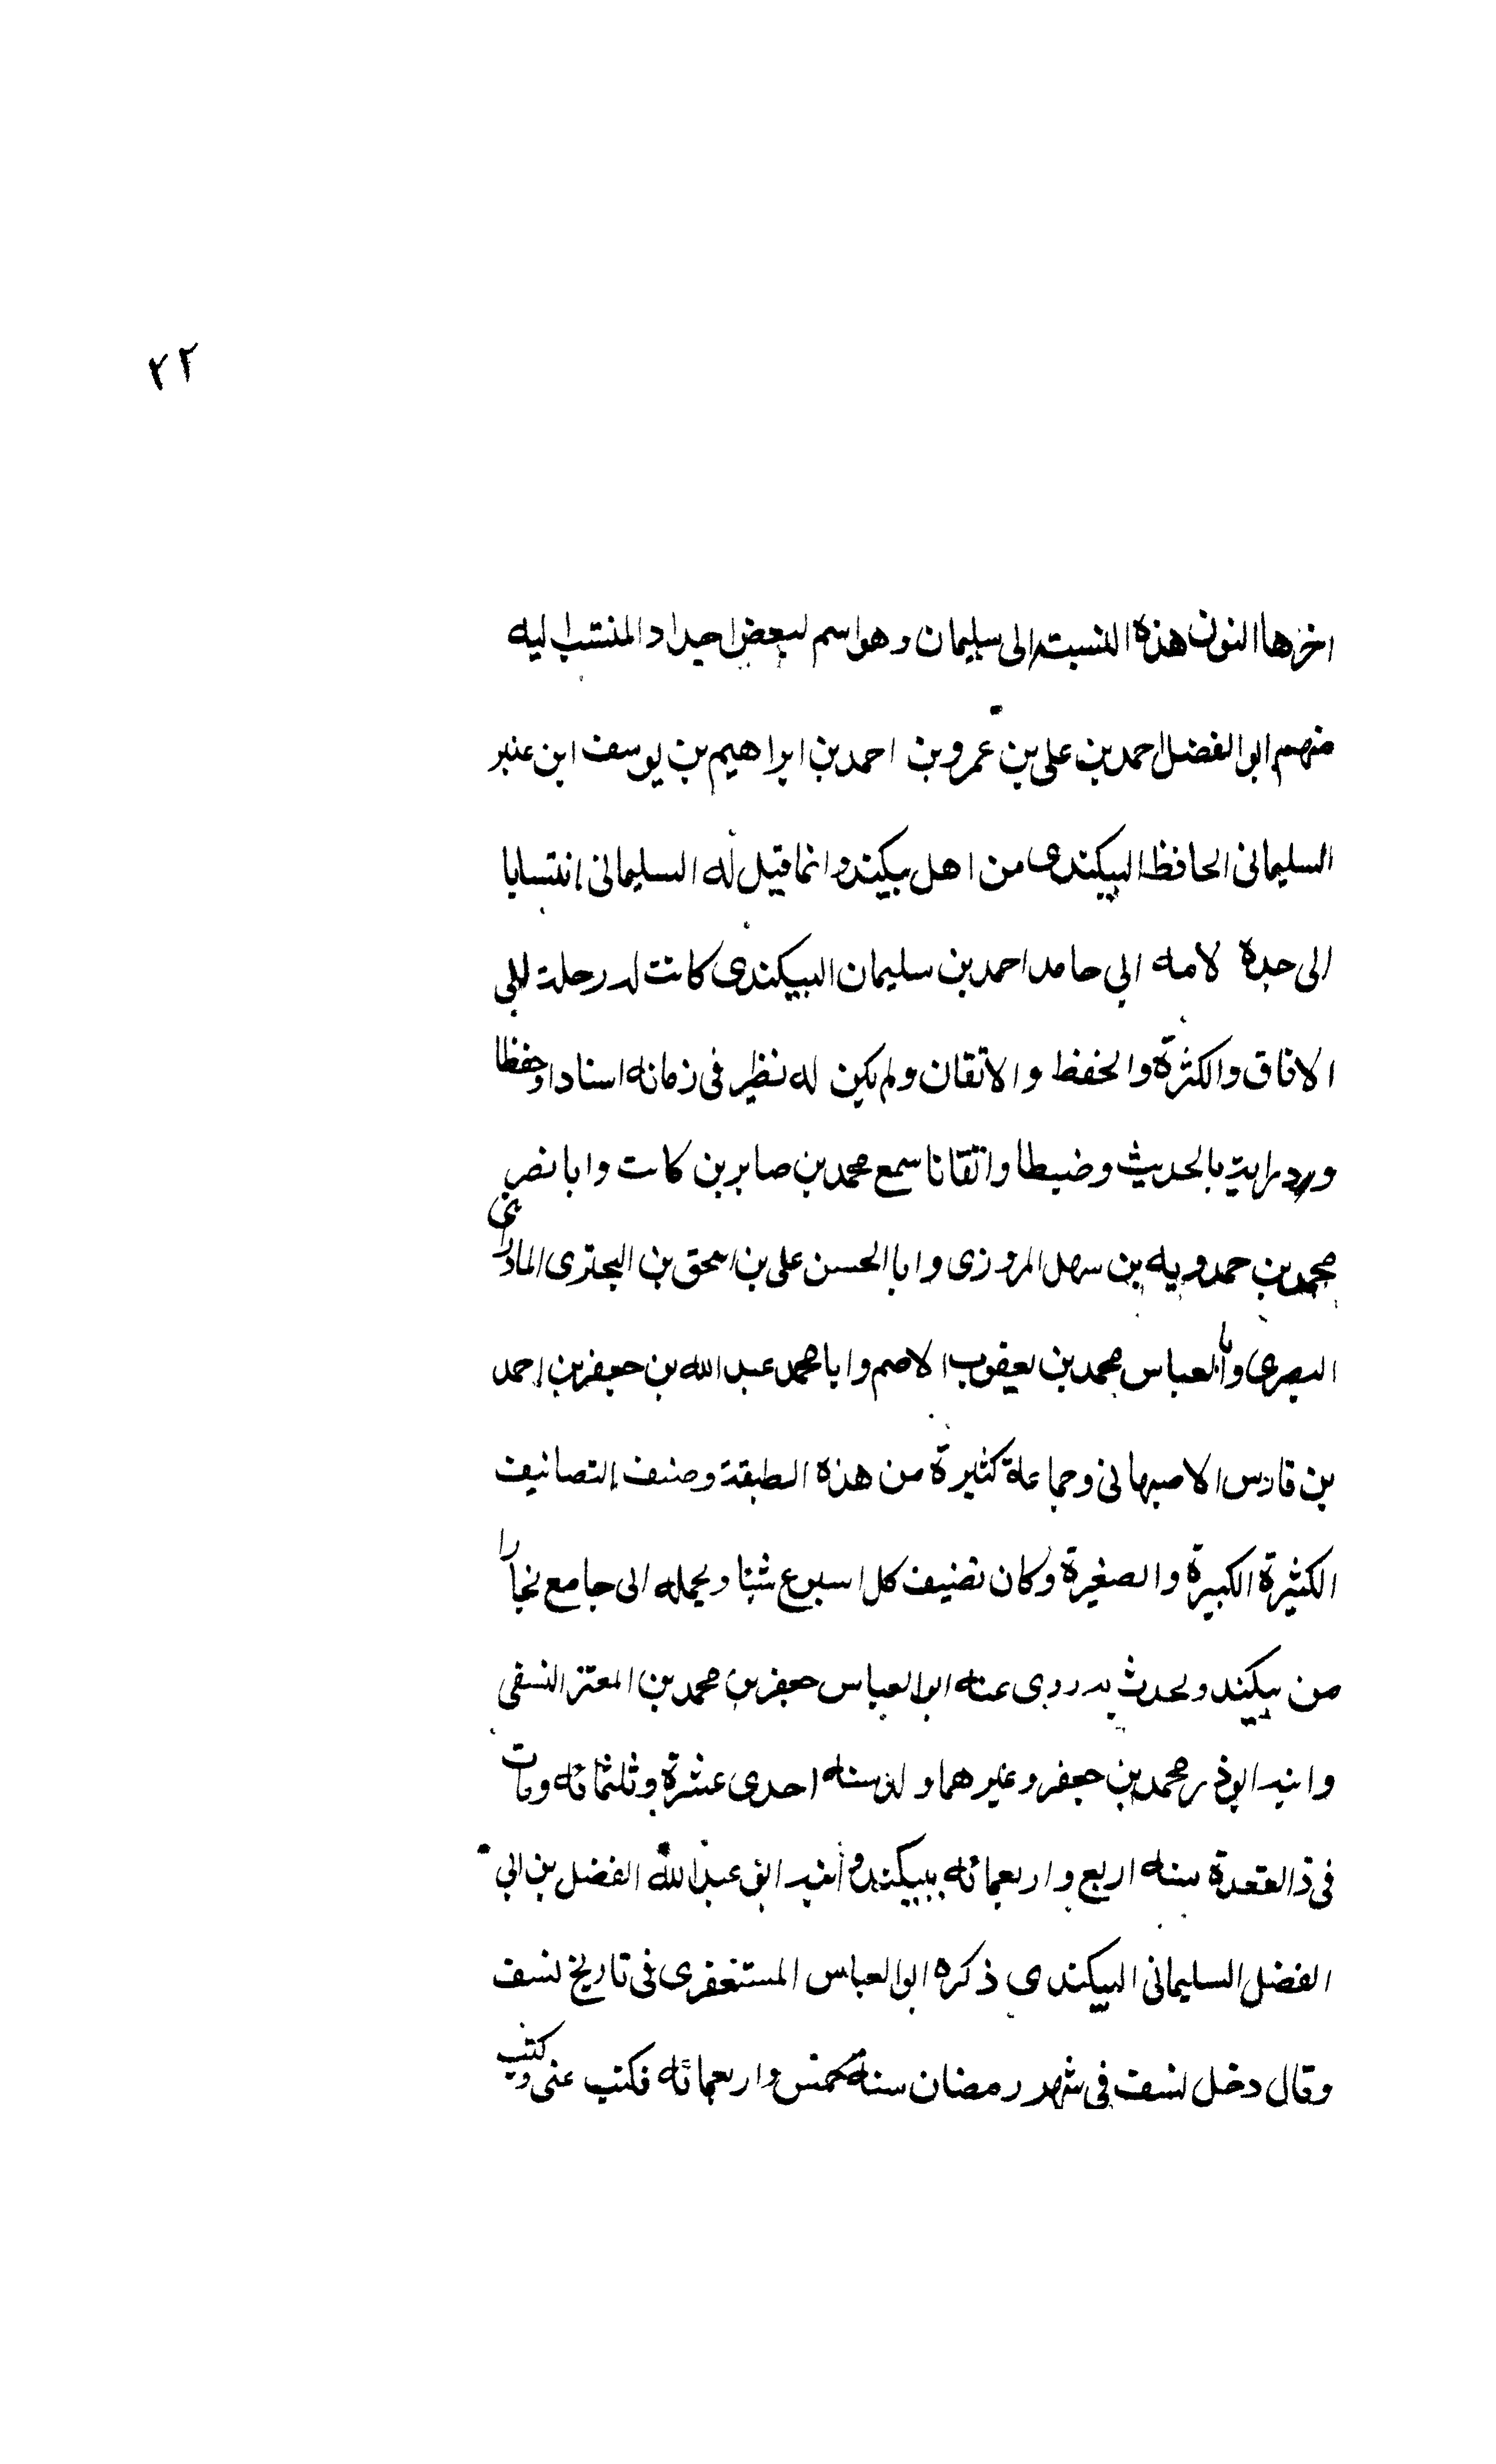 ٢٢
اخرها النون هذه النسبة الى سليمان وهو اسم لبعض اجداد المنتسب اليه
منهم ابو الفضل احمد بن على بن عمرو بن احمد بن ابراهيم بن يوسف ابن عنبر
السليمانى الحافظ البيكندى من اهل بيكند وانما قيل له السليمانى انتسابا
الى جده لامه ابي حامد احمد بن سليمان البيكندى كانت له رحلة الى
الافاق والكثرة والحفظ والاتقان ولم يكن له نظير فى زمانه اسنادا وحفظا
ودراية بالحديث وضبطا واتقانا سمع محمد بن صابر بن كاتب وابا نصر
محمد بن حمدويه بن سهل المروزى وابا الحسن على بن اسحق بن البحترى المادرائى
البصرى وابا العباس محمد بن يعقوب الاصم وابا محمد عبد الله بن جعفر بن احمد
بن فارس الاصبهانى وجماعة كثيرة من هذه الطبقة وصنف التصانيف
الكثيرة الكبيرة والصغيرة وكان تصنيف كل اسبوع شيئا ويحمله الى جامع بخارا
من بيكند ويحدث به روى عنه ابو العباس جعفر بن محمد بن المعتز النسفى
وابنه ابو ذر محمد بن جعفر وغيرهما ولد سنه احدى عشرة وثلثمائه ومات
فى ذ القعدة سنه اربع واربعمائه ببيكند وابنه ابو عبد الله الفضل بن ابي
الفضل السليمانى البيكندى ذكره ابو العباس المستغفرى فى تاريخ نسف
وقال دخل نسف فى شهر رمضان سنة خمس واربعمائه فكتب عنى وكتب